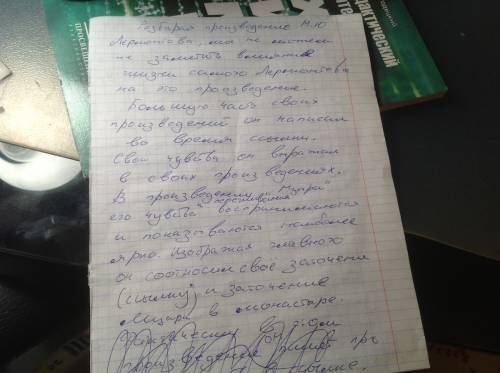 ПРОСВЕЩЕНИЕ
дактический
Разбирая произведение М.Ю
Лермонтова, мы не можем
не заметить влияние
жизни самого Лермонтова
на это произведение.
Большую часть своих
произведений он написал
во время ссылки.
Свои чувства он выражал
в своих произведениях.
В произведении "Мцыри"
его чувства переживания воспринимаются
и показываются наиболее
ярко. Изображая главного
он соотносил своё заточение
(ссылку) и заточение
Мцыри в монастыре.
произведение
в ссылке.